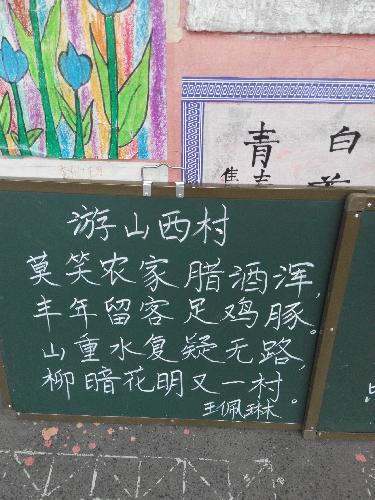 青
白
游山西村
莫笑农家腊酒浑，
丰年留客足鸡豚。
山重水复疑无路，
柳暗花明又一村。
王佩琳